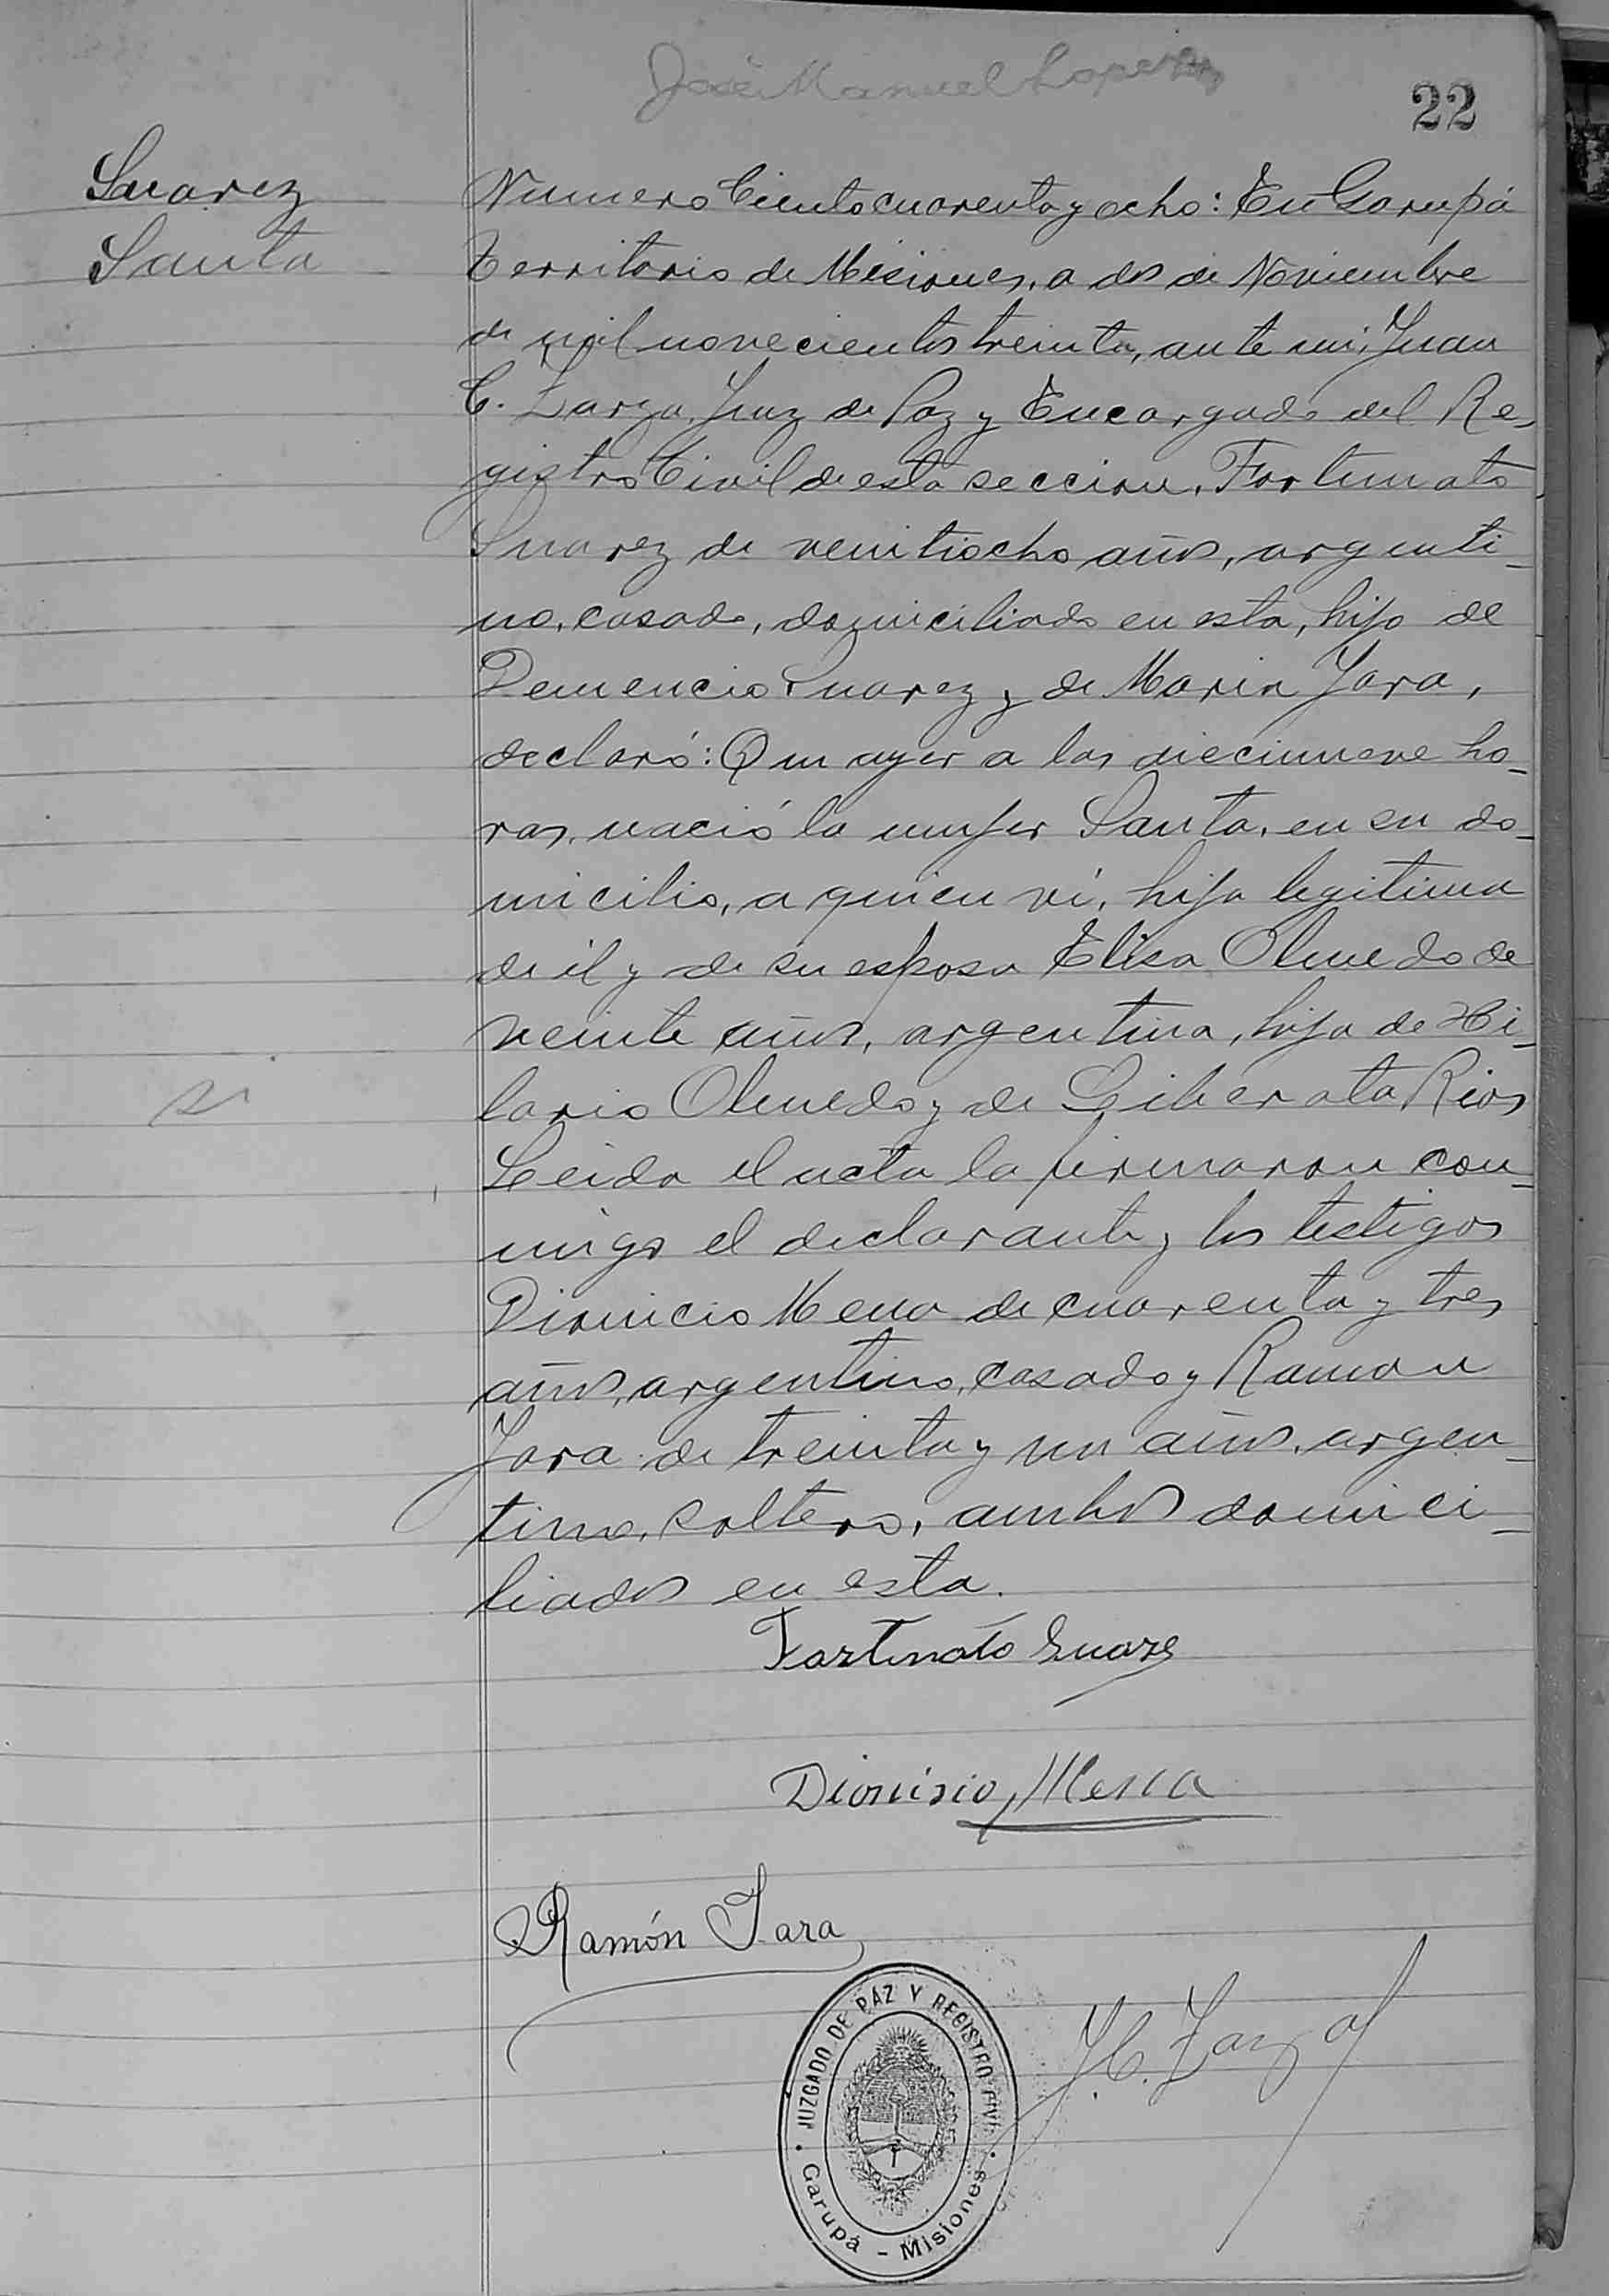 José Manuel Lopez
22
Suarez
Santa
Numero Ciento cuarenta y ocho: En Garupá
Territorio de Misiones, a dos de Noviembre
de mil novecientos treinta, ante mi, Juan
C. Zarza, Juez de Paz y Encargado del Re-
gistro Civil de esta seccion, Fortunato
Suarez de veintiocho años, argenti-
no, casado, domiciliado en esta, hijo de
Demencio Suarez y de Maria Jara,
declaró: Que ayer a las diecinueve ho-
ras, nació la mujer Santa, en su do-
micilio, a quien vi, hija legitima
de él y de su esposa Elisa Olmedo de
veinte años, argentina, hija de Hi-
lario Olmedo y de Liberata Rios
si
Leida el acta la firmaron con-
migo el declarante y los testigos
Dionicio Mena de cuarenta y tres
años, argentino, casado y Ramon
Jara de treinta y un años, argen-
tino, soltero, ambos domici-
liados en esta.
Fortunato Suarez
Dionisio Mena
Ramón Jara
J. C. Zarza
JUZGADO DE PAZ Y REGISTRO CIVIL
Garupá - Misiones